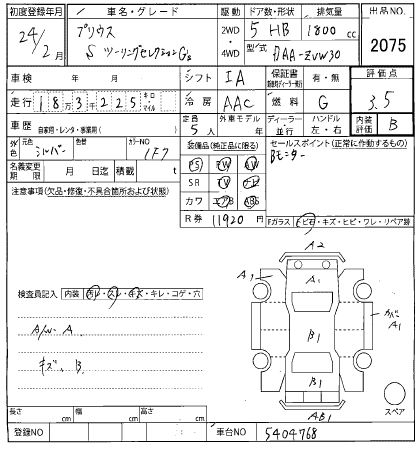 初度登録年月 車名・グレード 駆動 ドア数・形状 排気量 出品NO.
24/2月 プリウス Sツーリングセレクション G's 2WD・4WD 5 HB 1800cc 2075
型式 DAA-ZVW30
車検 年 月 シフト IA 保証書 有・無 評価点
走行 18万3千225 キロ・マイル 冷房 AAC 燃料 G 3.5
車歴 自家用・レンタ・事業用( ) 定員 5人 外車モデル 年 ディーラー・並行 ハンドル 左・右 内装評価 B
外色 元色 シルバー 色替 カラーNO 1F7 装備品(純正品に限る) セールスポイント(正常に作動するもの)
PS PW AW Bモニター
名義変更期限 月 日迄 積載 t SR TV ナビ
注意事項(欠品・修復・不具合箇所および状態) カワ エアB ABS
R券 11920円 Fガラス トビ石・キズ・ヒビ・ワレ・リペア跡
A2
A1 A1
検査員記入 内装 汚レ・スレ・キズ・キレ・コゲ・穴
A/W A
B1 カバーA1
キズ B
B1
スペア
長さ cm 幅 cm 高さ cm AB1
登録NO 車台NO 5404768